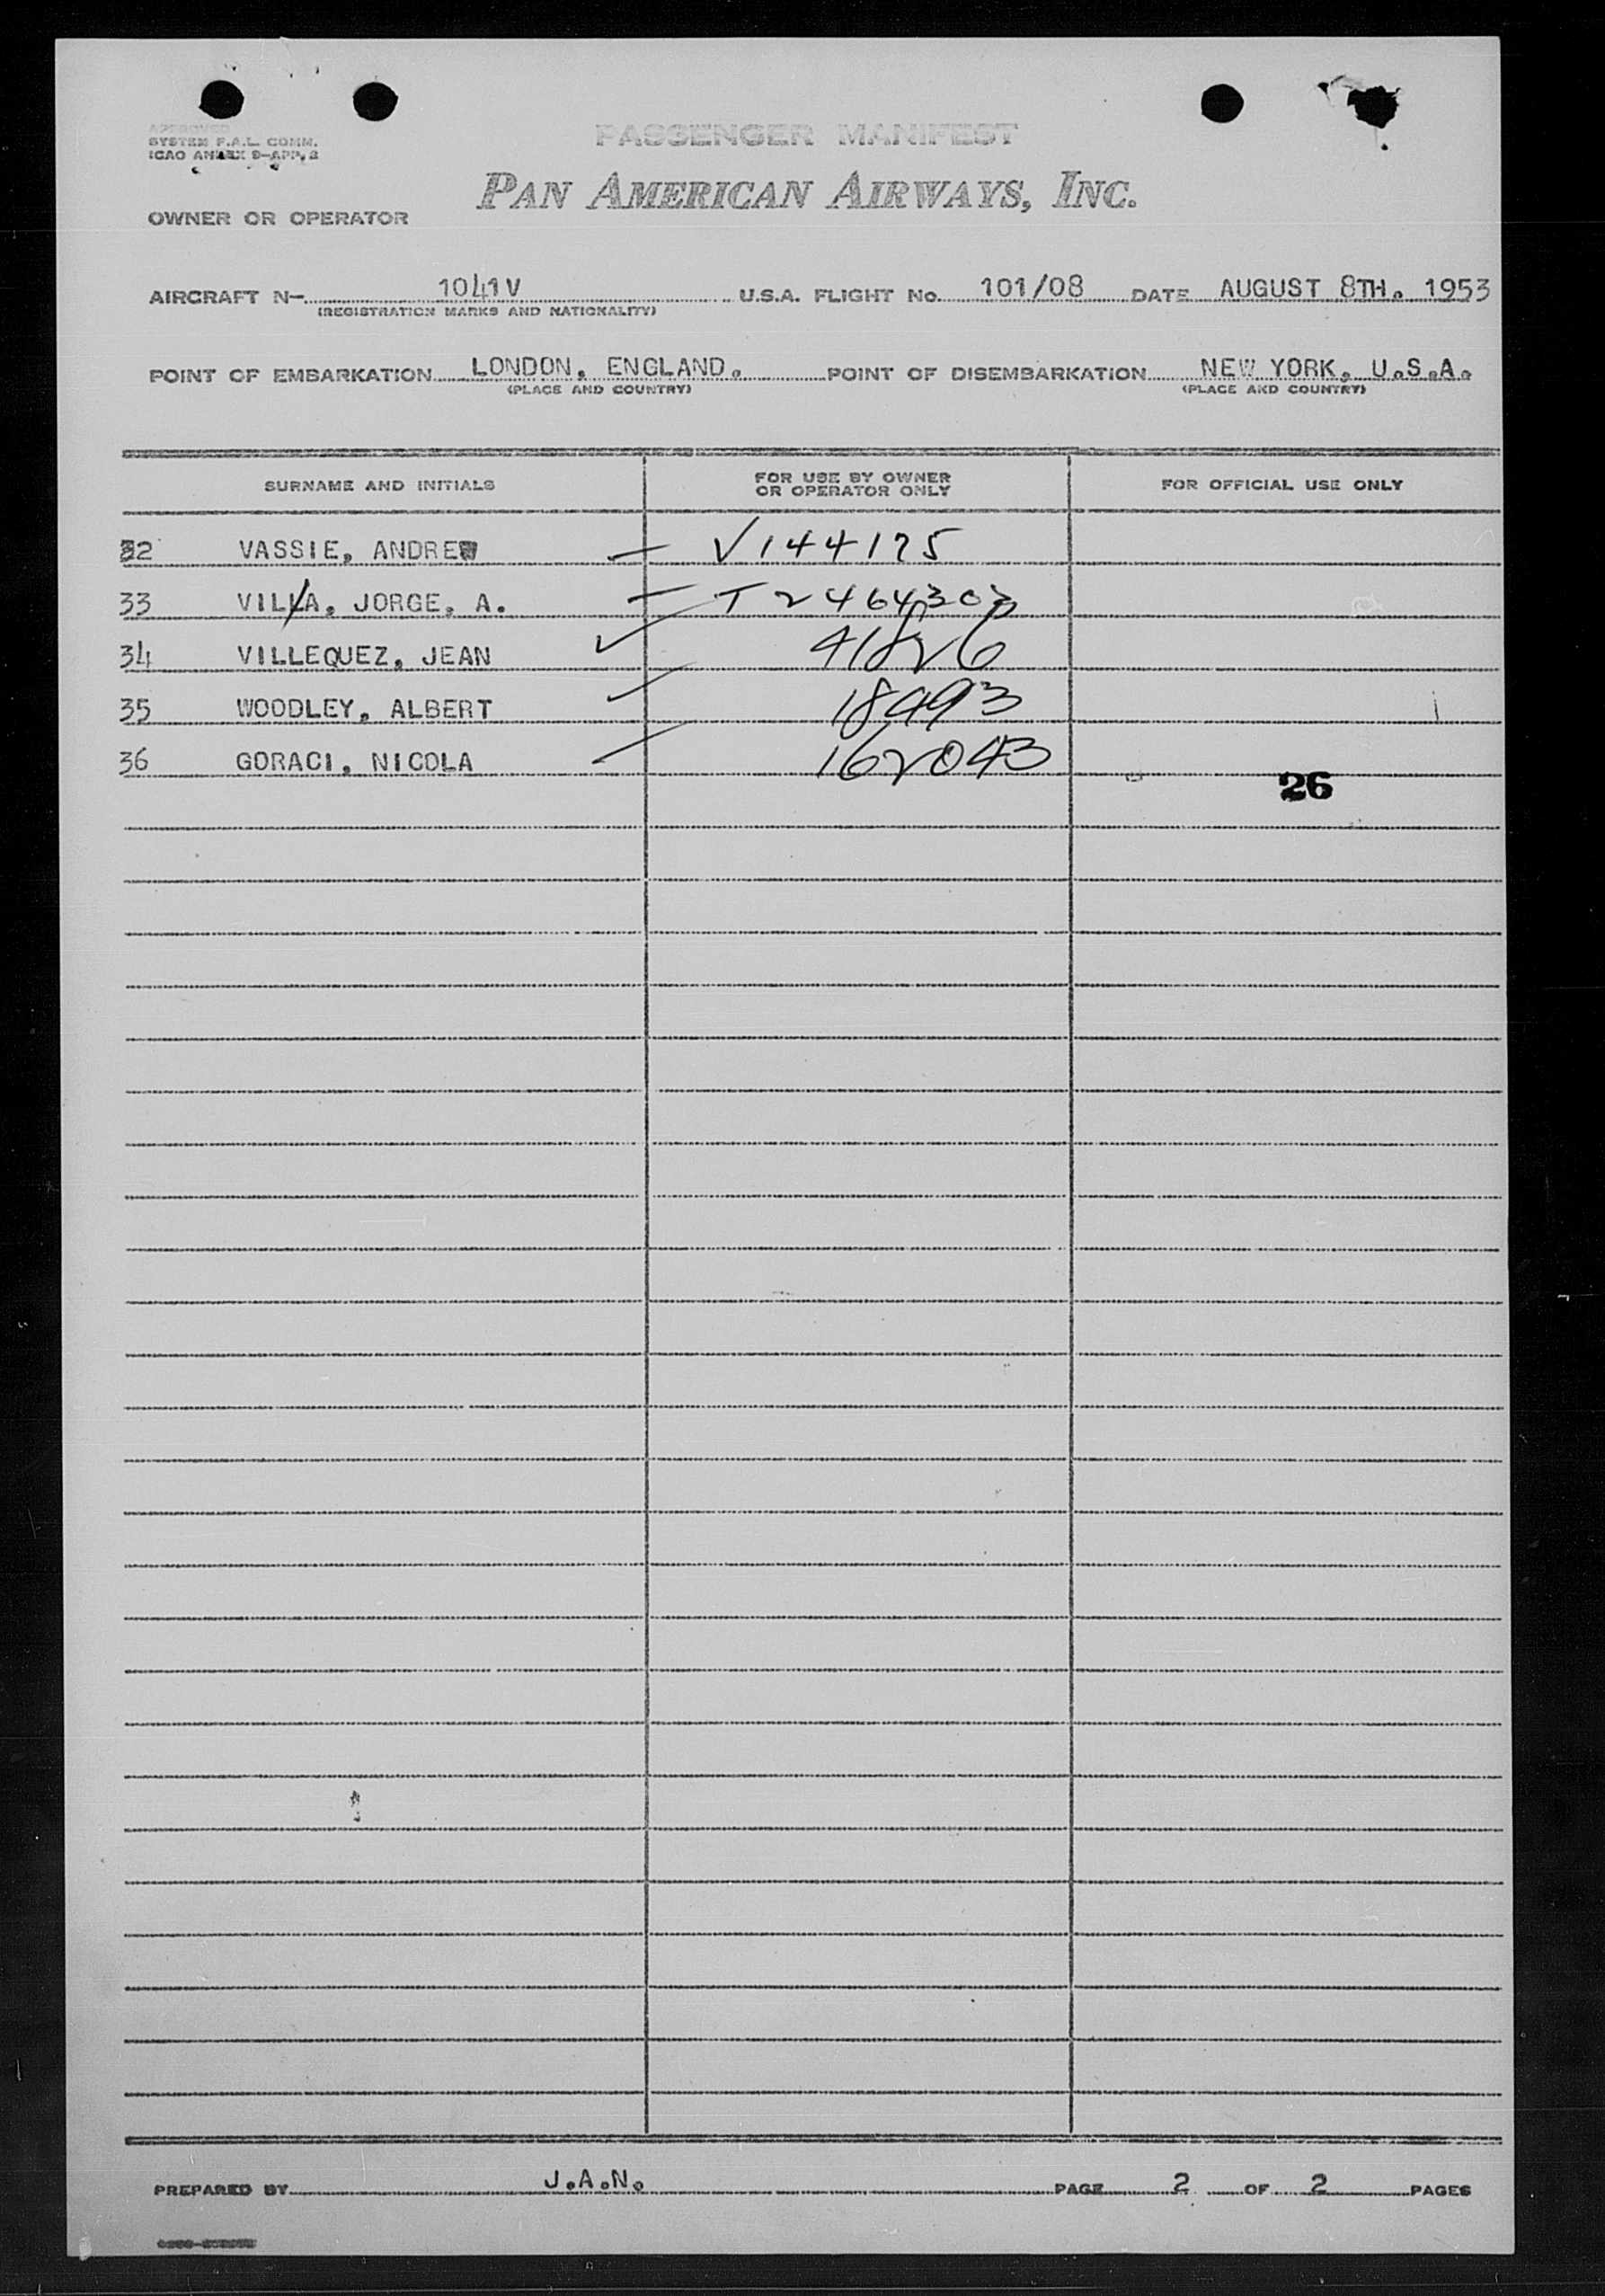 APPROVED
SYSTEM F.A.L. COMM.
ICAO ANNEX 9-APP. 2
PASSENGER MANIFEST
PAN AMERICAN AIRWAYS, INC.
OWNER OR OPERATOR
AIRCRAFT N- 1041V U.S.A. FLIGHT No. 101/08 DATE AUGUST 8TH. 1953
(REGISTRATION MARKS AND NATIONALITY)
POINT OF EMBARKATION LONDON, ENGLAND. POINT OF DISEMBARKATION NEW YORK, U.S.A.
(PLACE AND COUNTRY) (PLACE AND COUNTRY)
SURNAME AND INITIALS FOR USE BY OWNER OR OPERATOR ONLY FOR OFFICIAL USE ONLY
32 VASSIE, ANDREW — V144175
33 VILLA, JORGE, A. — T2464303
34 VILLEQUEZ, JEAN ✓ 41826
35 WOODLEY, ALBERT 18993
36 GORACI, NICOLA 162043
26
PREPARED BY J.A.N. PAGE 2 OF 2 PAGES